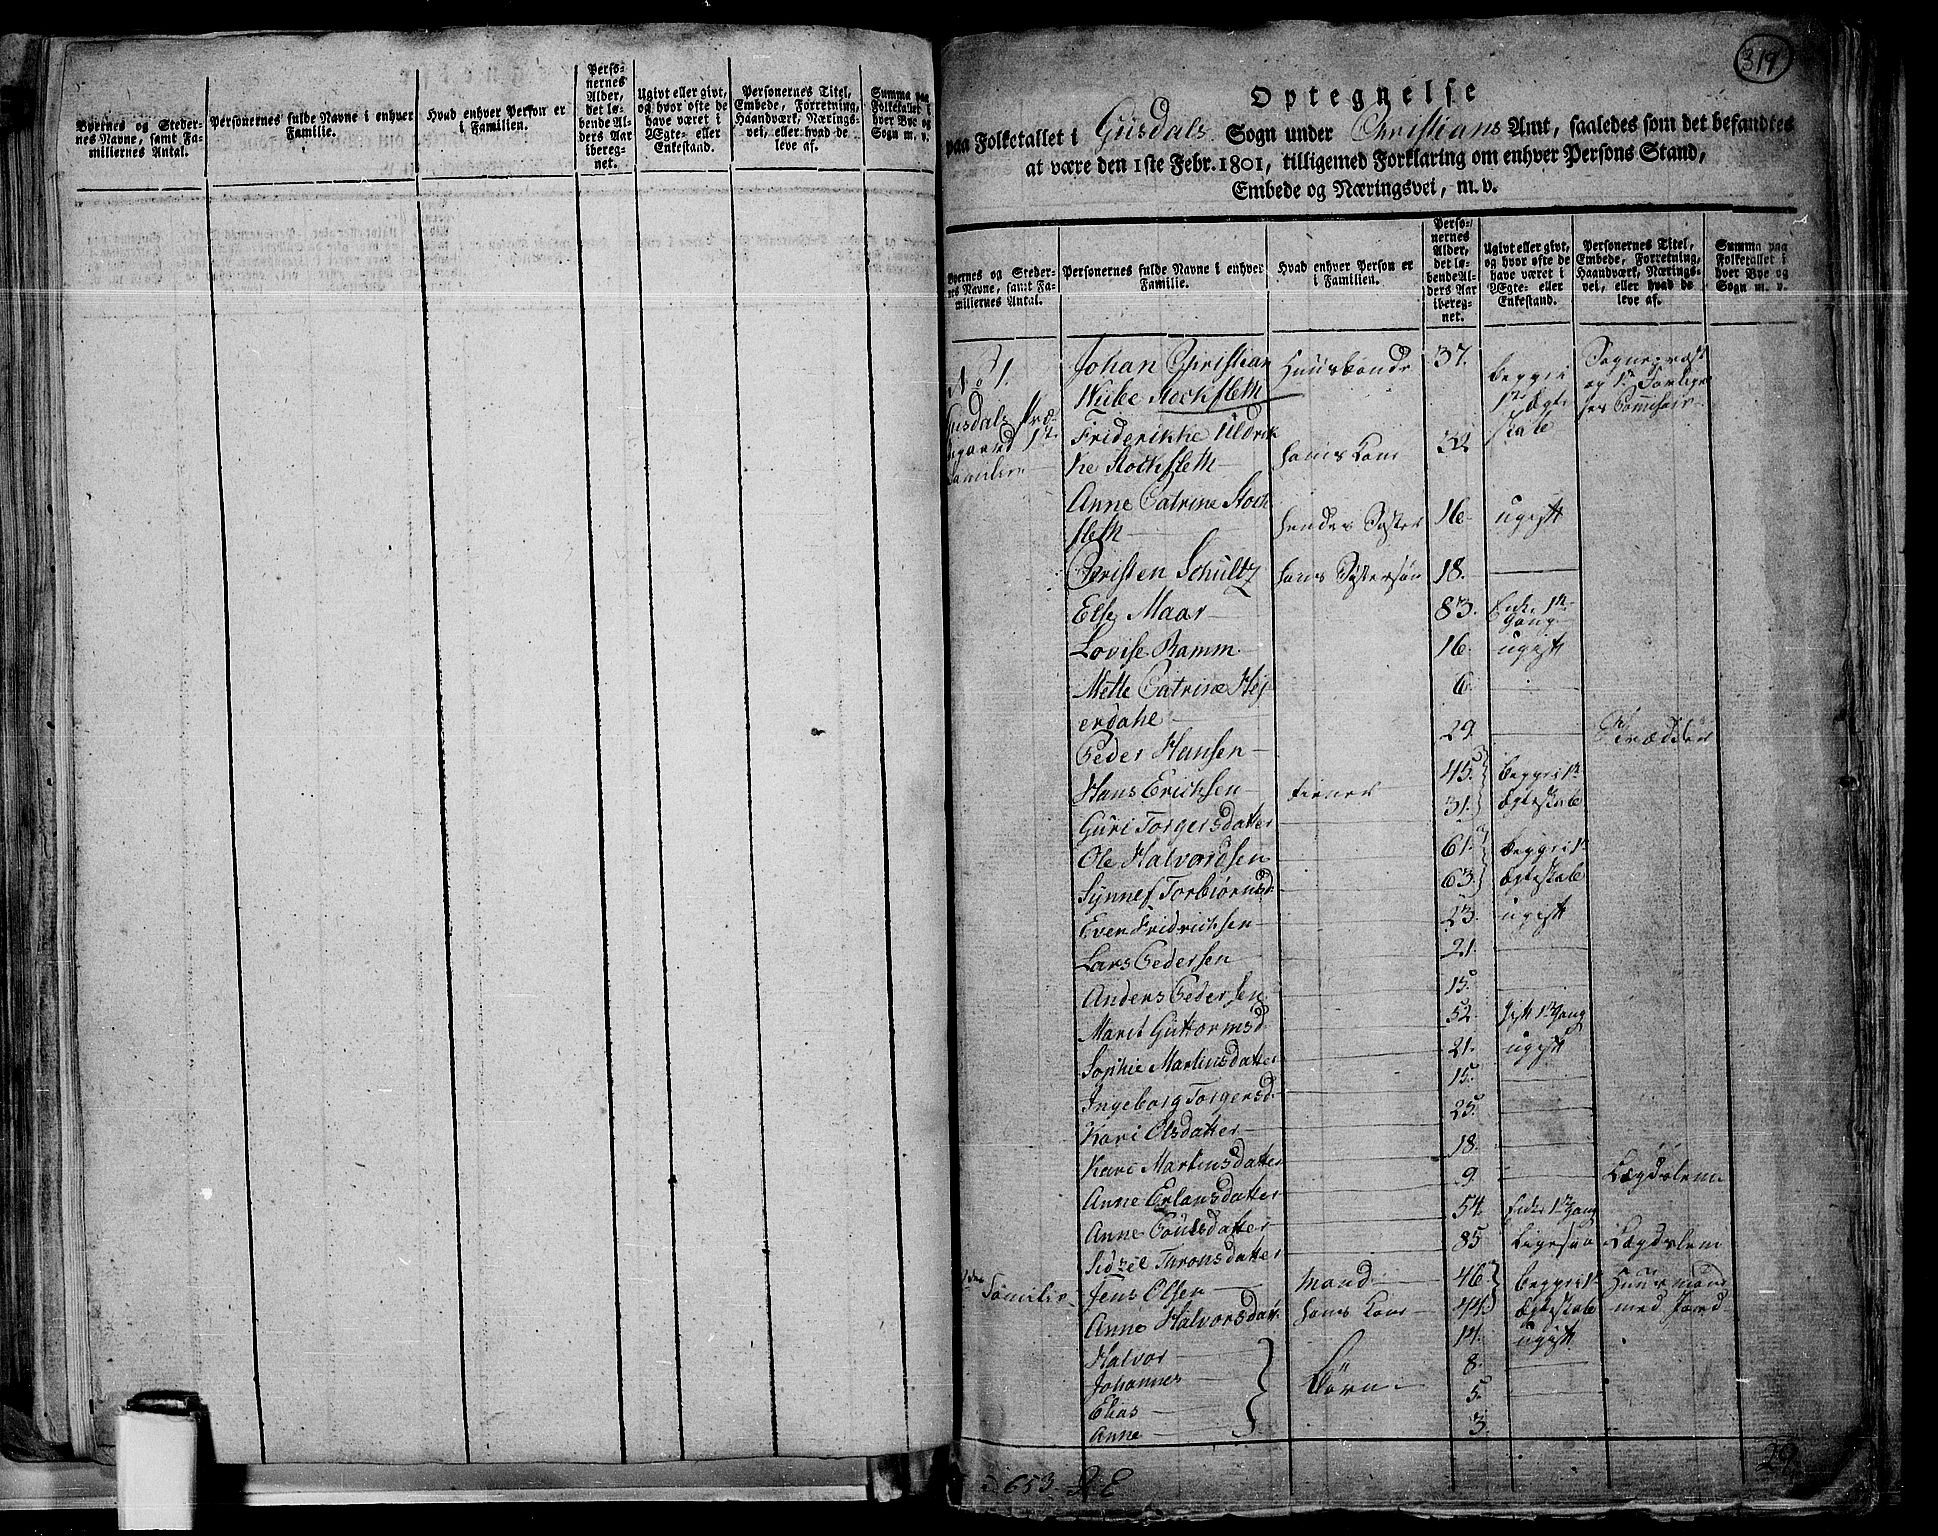 Byernes og Steder-
nes Navne, samt Fa-
millernes Antal.
Personernes fulde Navne i enhver
Familie.
Hvad enhver Person er
i Familien.
Perso-
nernes
Alder,
det lø-
bende Al-
ders Aar
iberegnet.
Ugivt eller givt,
og hvor ofte de
have været i
Ægte- eller
Enkestand.
Personernes Titel,
Embede, Forretning,
Haandværk, Nærings-
vei, eller hvad de
leve af.
Summa paa
Folketallet i
hver Bye og
Sogn m. v.
319
Optegnelse
paa Folketallet i Gusdals Sogn under Christians Amt, saaledes som det befandtes
at være den 1ste Febr. 1801, tilligemed Forklaring om enhver Persons Stand,
Embede og Næringsvei, m. v.
Byernes og Steder-
nes Navne, samt Fa-
millernes Antal.
Personernes fulde Navne i enhver
Familie.
Hvad enhver Person er
i Familien.
Perso-
nernes
Alder,
det lø-
bende Al-
ders Aar
ibereg-
net.
Ugivt eller givt,
og hvor ofte de
have været i
Ægte- eller
Enkestand.
Personernes Titel,
Embede, Forretning,
Haandværk, Nærings-
vei, eller hvad de
leve af.
Summa paa
Folketallet i
hver Bye og
Sogn m. v.
No 1. Johan Christian Huusbonde 37. Begge i Sognepræst
Wibe Stockfleth 1te Ægte og Forliges
Gusdals Præ- skab ses Commissair
Friderikke Uldrik
degaard 1te ke Stockfleth hans Kone 32
Familie
Anne Catrine Stock
fleth hendes Søster 16 ugift
Christen Schultz hans Søstersøn 18.
Else Maar 83. Enke 1te Gang
Lovise Ramm 16. ugift
Mette Catrine Hej 6
erdahl
Peder Hansen 29.
Hans Erichsen tiener 45. Begge i 1te
Guri Torgersdatter 31. Ægteskab
Ole Halvordsen 61. Begge i 1te
Synnef Torbiørnsd. 63. Ægteskab
Even Fridrichsen 23. ugift
Lars Pedersen 21.
Anders Pedersen 15.
Marit Guttormsd 52. gift 1te Gang
Sophie Martinsdatter 21. ugift
Ingeborg Torgersd. 15.
Kari Olsdatter 25.
Kari Martinsdatter 18.
Anne Erlansdatter 9 Lægdslem
Anne Poulsdatter 54. Enke 1te Gang
Sidzel Thronsdatter 85 Ligesaa Lægdslem
2den Familie Jens Olsen Mand 46 Begge i 1te Huusmand
Anne Halvorsdatr. hans Kone 44 Ægteskab med Jord
Halvor 14. ugift
Johannes Børn 8.
Elias 5.
Anne 3.
653. R E
29